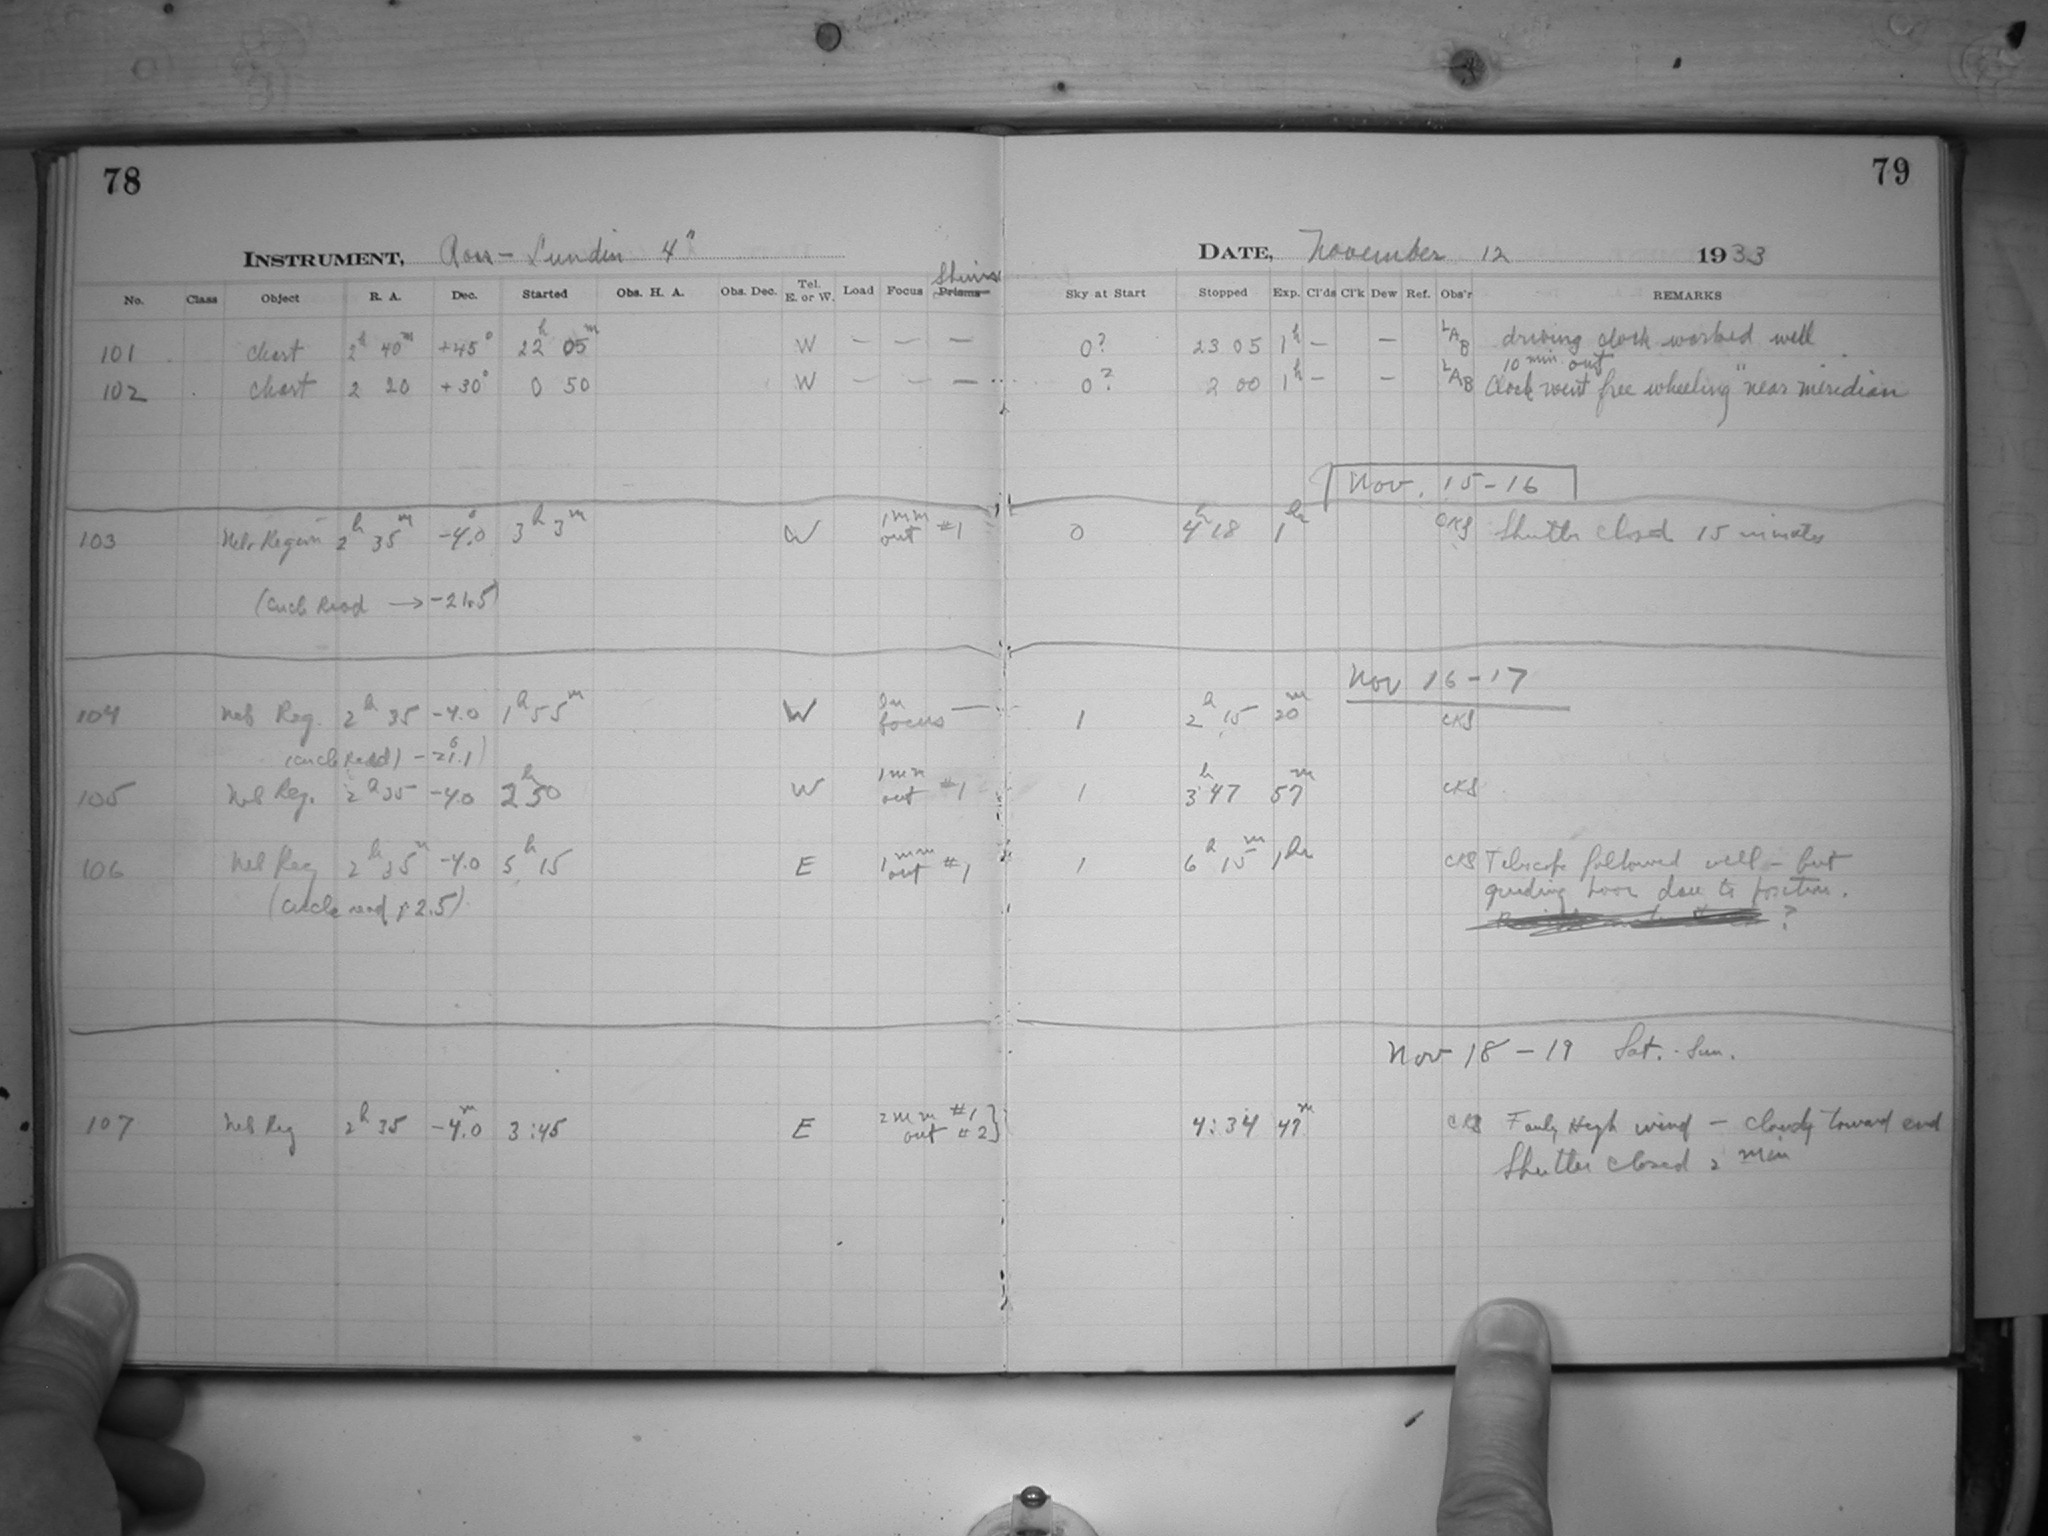 78
79
INSTRUMENT, Ross-Lundin 4"
DATE, November 12 1933
No. Class Object R. A. Dec. Started Obs. H. A. Obs. Dec. Tel. E. or W. Load Focus Prisms Shims
Sky at Start Stopped Exp. Cl'ds Cl'k Dew Ref. Obs'r REMARKS
101 Chart 2h 40m +45° 22h 05m W — — — 0? 23 05 1h — — LAB driving clock worked well
10 min. out
102 Chart 2 20 +30° 0 50 W — — — 0? 2 00 1h — — LAB Clock went "free wheeling" near meridian
Nov. 15-16
103 Neb Region 2h 35m -4.0° 3h 3m W 1mm out #1 0 4h 18 1hr CKS Shutter closed 15 minutes
(circle read → -21.5)
Nov 16-17
104 Neb Reg. 2h 35 -4.0 1h 55m W In focus — 1 2h 15 20m CKS
(circle read) -21.1)
105 Neb Reg. 2h 35 -4.0 2h 50 W 1mm out #1 1 3h 47 57m CKS
106 Neb Reg 2h 35m -4.0 5h 15 E 1mm out #1 1 6h 15m 1hr CKS Telescope followed well - but
(circle read 2.5) guiding poor due to position.
?
Nov 18-19 Sat.-Sun.
107 Neb Reg 2h 35 -4.0m 3:45 E 2mm out #1 #2 4:34 47m CKS Fairly High wind - cloudy toward end
Shutter closed 2 min